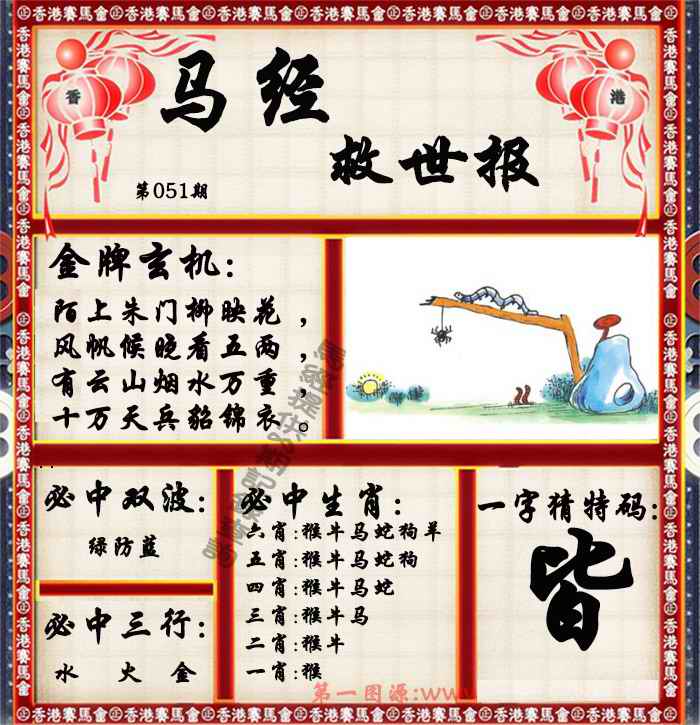 香港賽馬會
香
港
马经
救世报
第051期
金牌玄机:
陌上朱门柳映花，
风帆候晚看五两，
有云山烟水万重，
十万天兵貂锦衣。
必中双波:
绿防蓝
必中三行:
水 火 金
必中生肖:
六肖:猴牛马蛇狗羊
五肖:猴牛马蛇狗
四肖:猴牛马蛇
三肖:猴牛马
二肖:猴牛
一肖:猴
一字猜特码:
皆
第一图源:www